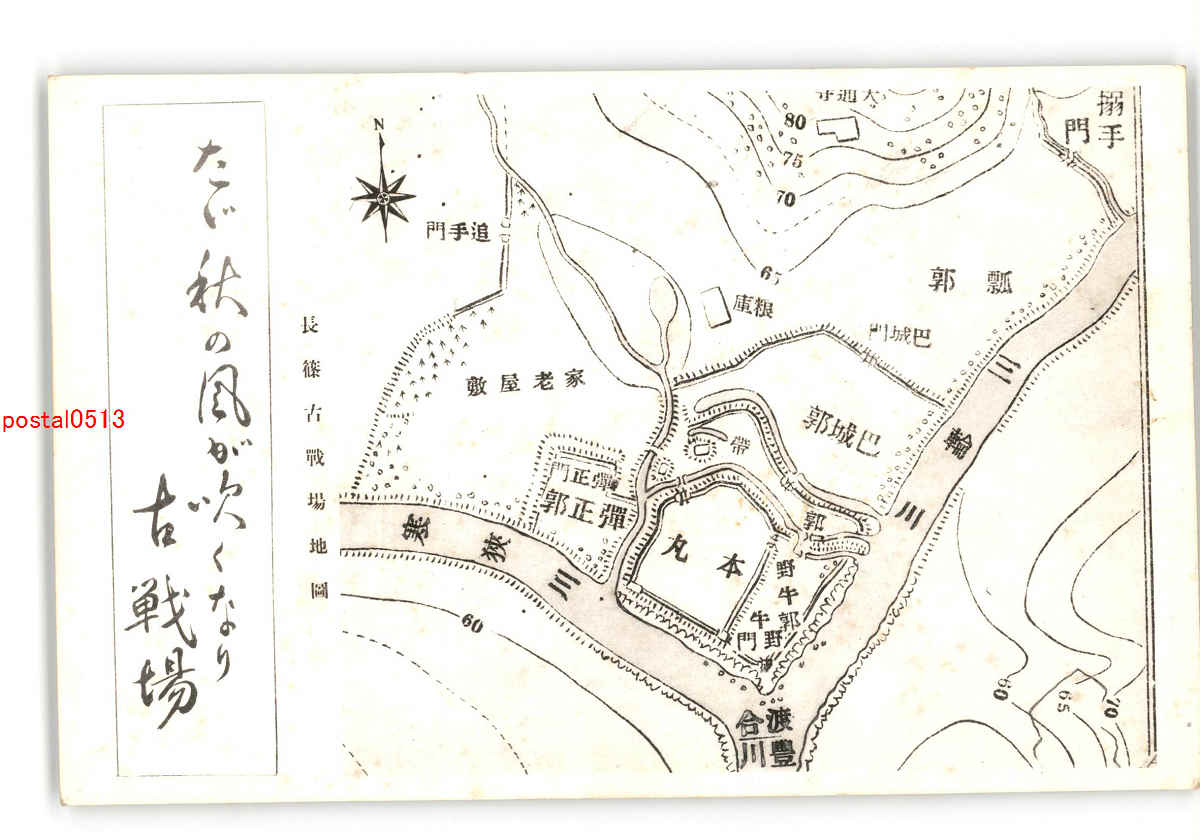 たゞ秋の風が吹くなり
古戦場
長篠古戰場地圖
N
大通寺
搦手門
80
75
70
65
追手門
瓢郭
粮庫
巴城門
家老屋敷
巴城郭
帯郭
三輪川
彈正門
彈正郭
本丸
野牛郭
野牛門
寒狹川
渡合
豐川
60
60
65
70
postal0513